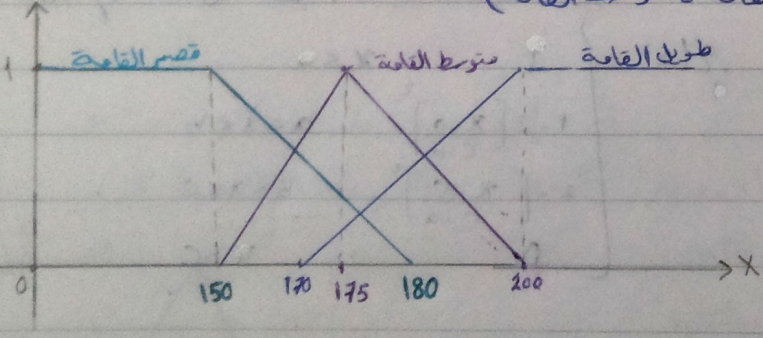 1 قصير القامة متوسط القامة طويل القامة
0 150 170 175 180 200 X